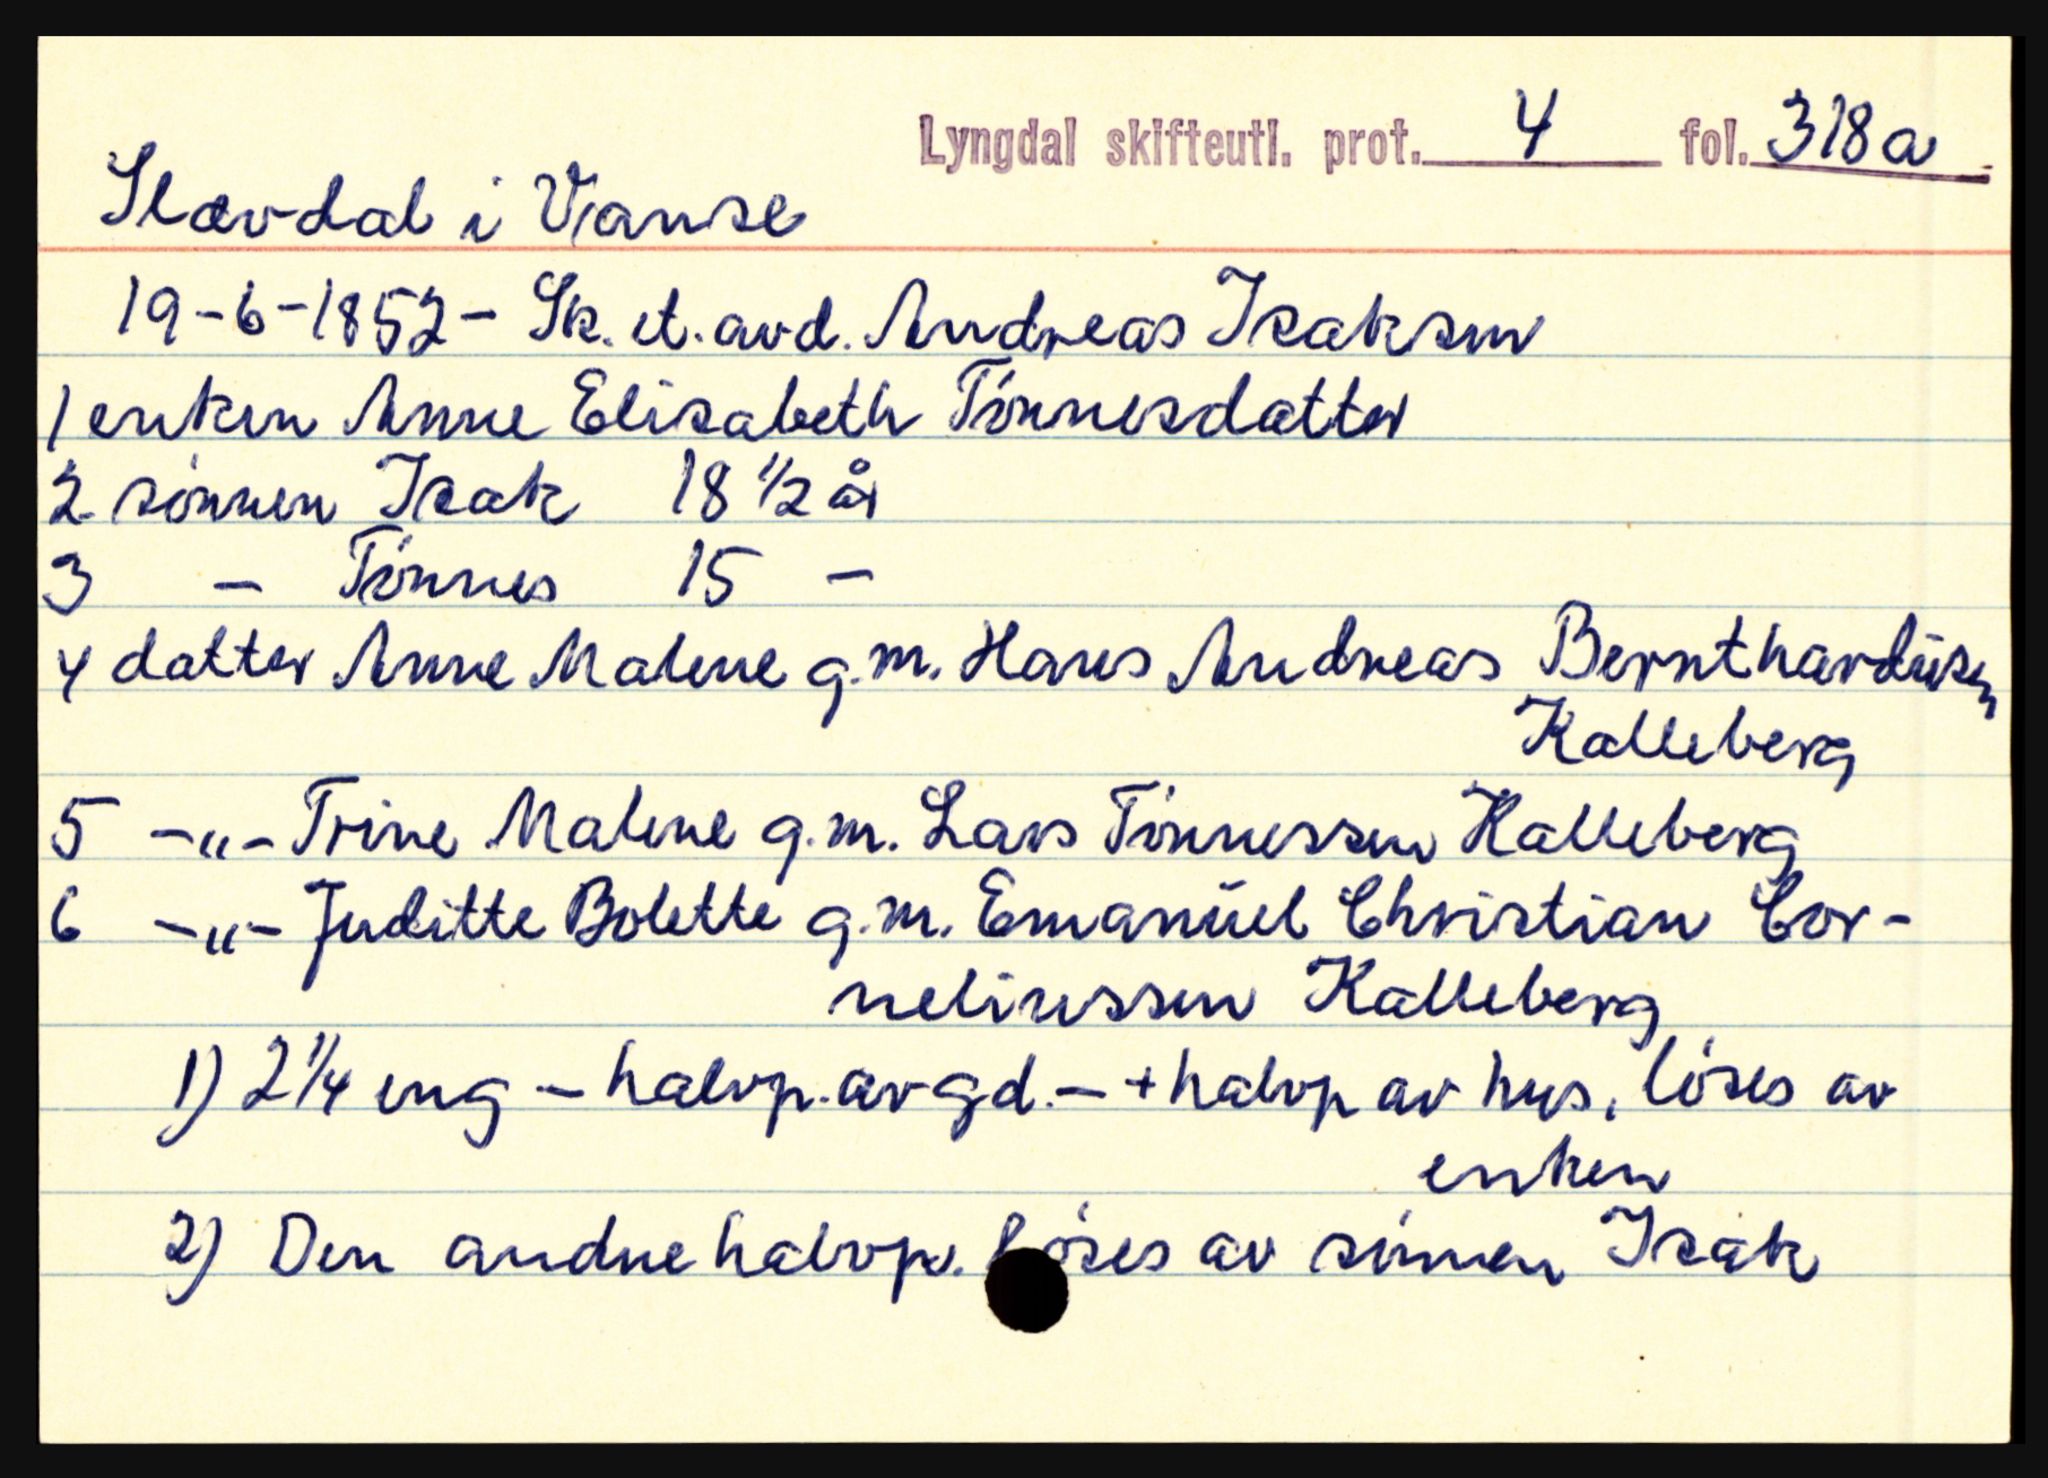 Lyngdal skifteutl. prot. 4 fol. 318a
Slævdal i Vanse
19-6-1852 - Sk. et. avd. Andreas Isaksen
1 enken Anne Elisabeth Tónnesdatter
2 sónnen Isak 18 1/2 år
3 - Tónnes 15 -
4 datter Anne Malene g.m. Hans Andreas Bernthardüsen
Kalleberg
5 -"- Trine Malene g.m. Lars Tónnessen Kalleberg
6 -"- Juditte Bolette g.m. Emanüel Christian Cor-
neliussen Kalleberg
1) 2 1/4 eng - halvp. av gd. - + halvp av hus, lóses av
enken
2) Den andne halvp. lóses av sónnen Isak